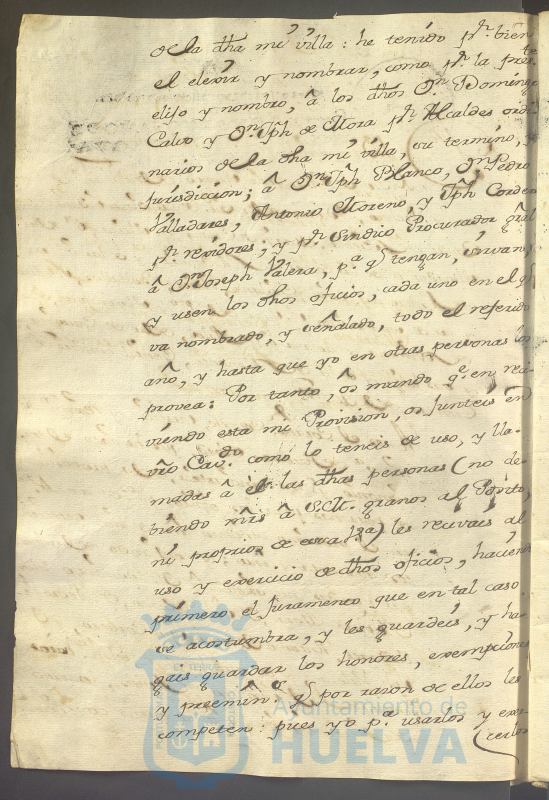 de la dha mi villa: he tenido pr. bien
el elexir y nombrar, como pr. la preste
elijo y nombro, â los dhos Dn. Domingo
Calvo y Dn. Jph de Mora pr. Alcaldes ordi
narios de la dha mi villa, su termino, y
jurisdiccion; â Dn. Jph Blanco, Dn. Pedro
Valladares, Antonio Moreno, y Jph Corder
pr. rexidores; y pr. Sindico Procurador gral
â Dn. Joseph Valera, pa. q tengan, sirvan,
y usen los dhos oficios, cada uno en el q
va nombrado, y señalado, todo el referido
año, y hasta que yo en otras personas los
provea: Por tanto, os mando qe. en reci
viendo esta mi Provision, os junteis en
vro Cavdo. como lo teneis de uso, y lla-
madas â el las dhas personas (no de-
biendo mrs â S.M. granos al Posito,
ni proprios de essa) les recivais al
uso y exercicio de dhos oficios, haciendo
primero el Juramento que en tal caso
se acostumbra, y les guardeis, y ha-
gais guardar los honores, exempciones
y preeminas. q por razon de ellos les
competen: pues yo pa. usarlos y exer-
(cerlos
Ayuntamiento de
HUELVA